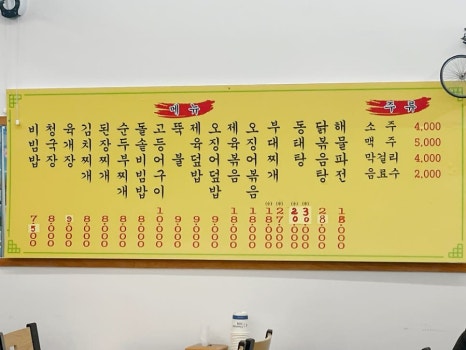 메뉴
비빔밥 7500
청국장 8000
육개장 9000
김치찌개 8000
된장찌개 8000
순두부찌개 8000
돌솥비빔밥 8000
고등어구이 10000
뚝불 9000
제육덮밥 9000
오징어덮밥 9000
제육볶음 18000
오징어볶음 18000
부대찌개
동태탕
닭볶음탕 28000
해물파전 18000
주류
소주 4,000
맥주 5,000
막걸리 4,000
음료수 2,000